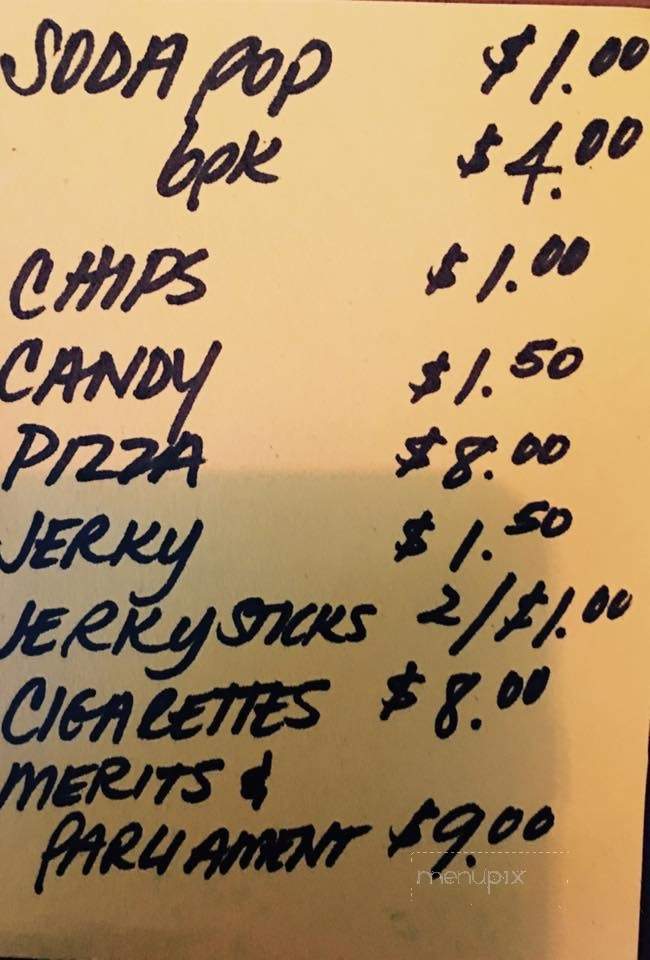 SODA POP $1.00
6pk $4.00
CHIPS $1.00
CANDY $1.50
PIZZA $8.00
JERKY $1.50
JERKY STICKS 2/$1.00
CIGARETTES $8.00
MERITS &
PARLIAMENT $9.00
menupix